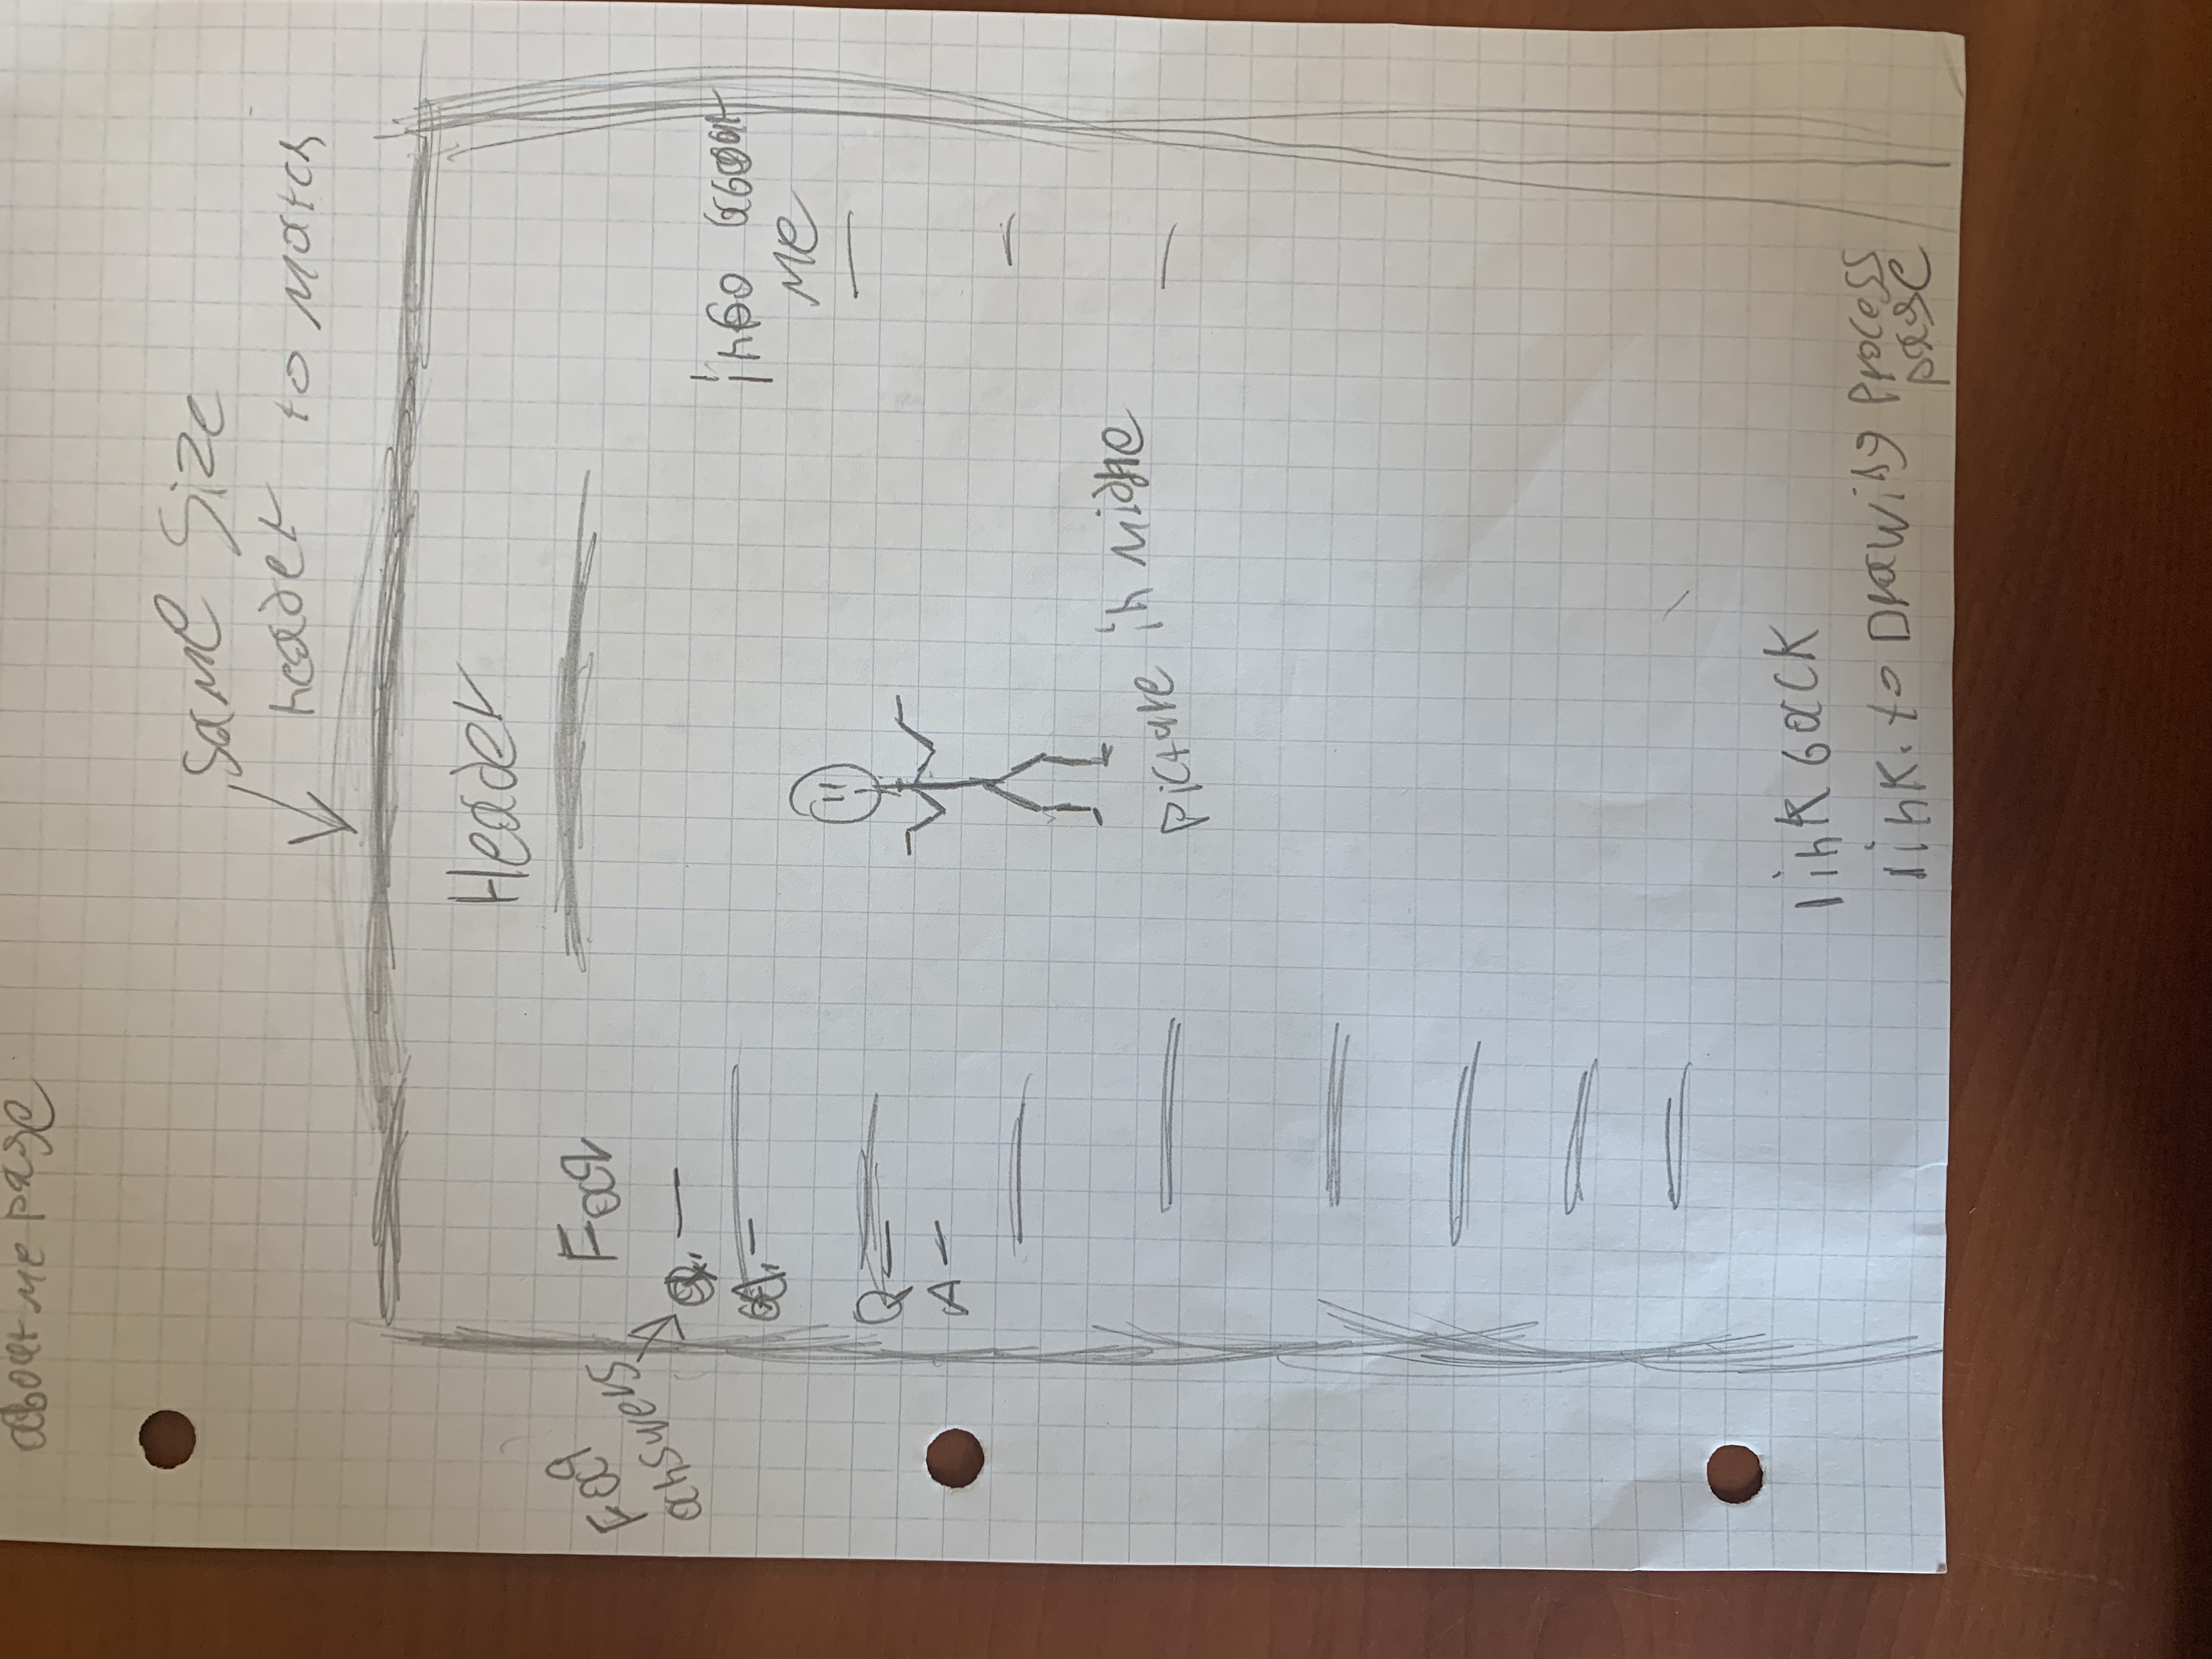 about me page
same size
header to match
Header
Faq
Faq
answers
Q. —
A. —
info about
me
Q —
A —
picture in middle
link back
link. to Drawing process
page